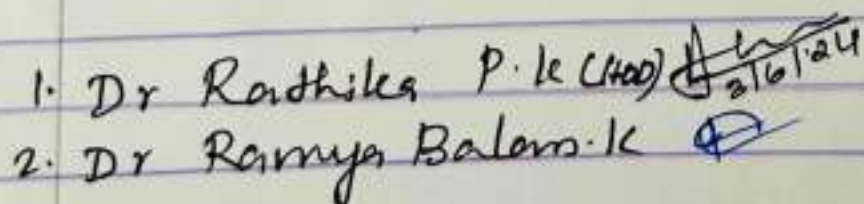 1. Dr Radhika P.K (HOD) 3/6/24
2. Dr Ramya Balan.K